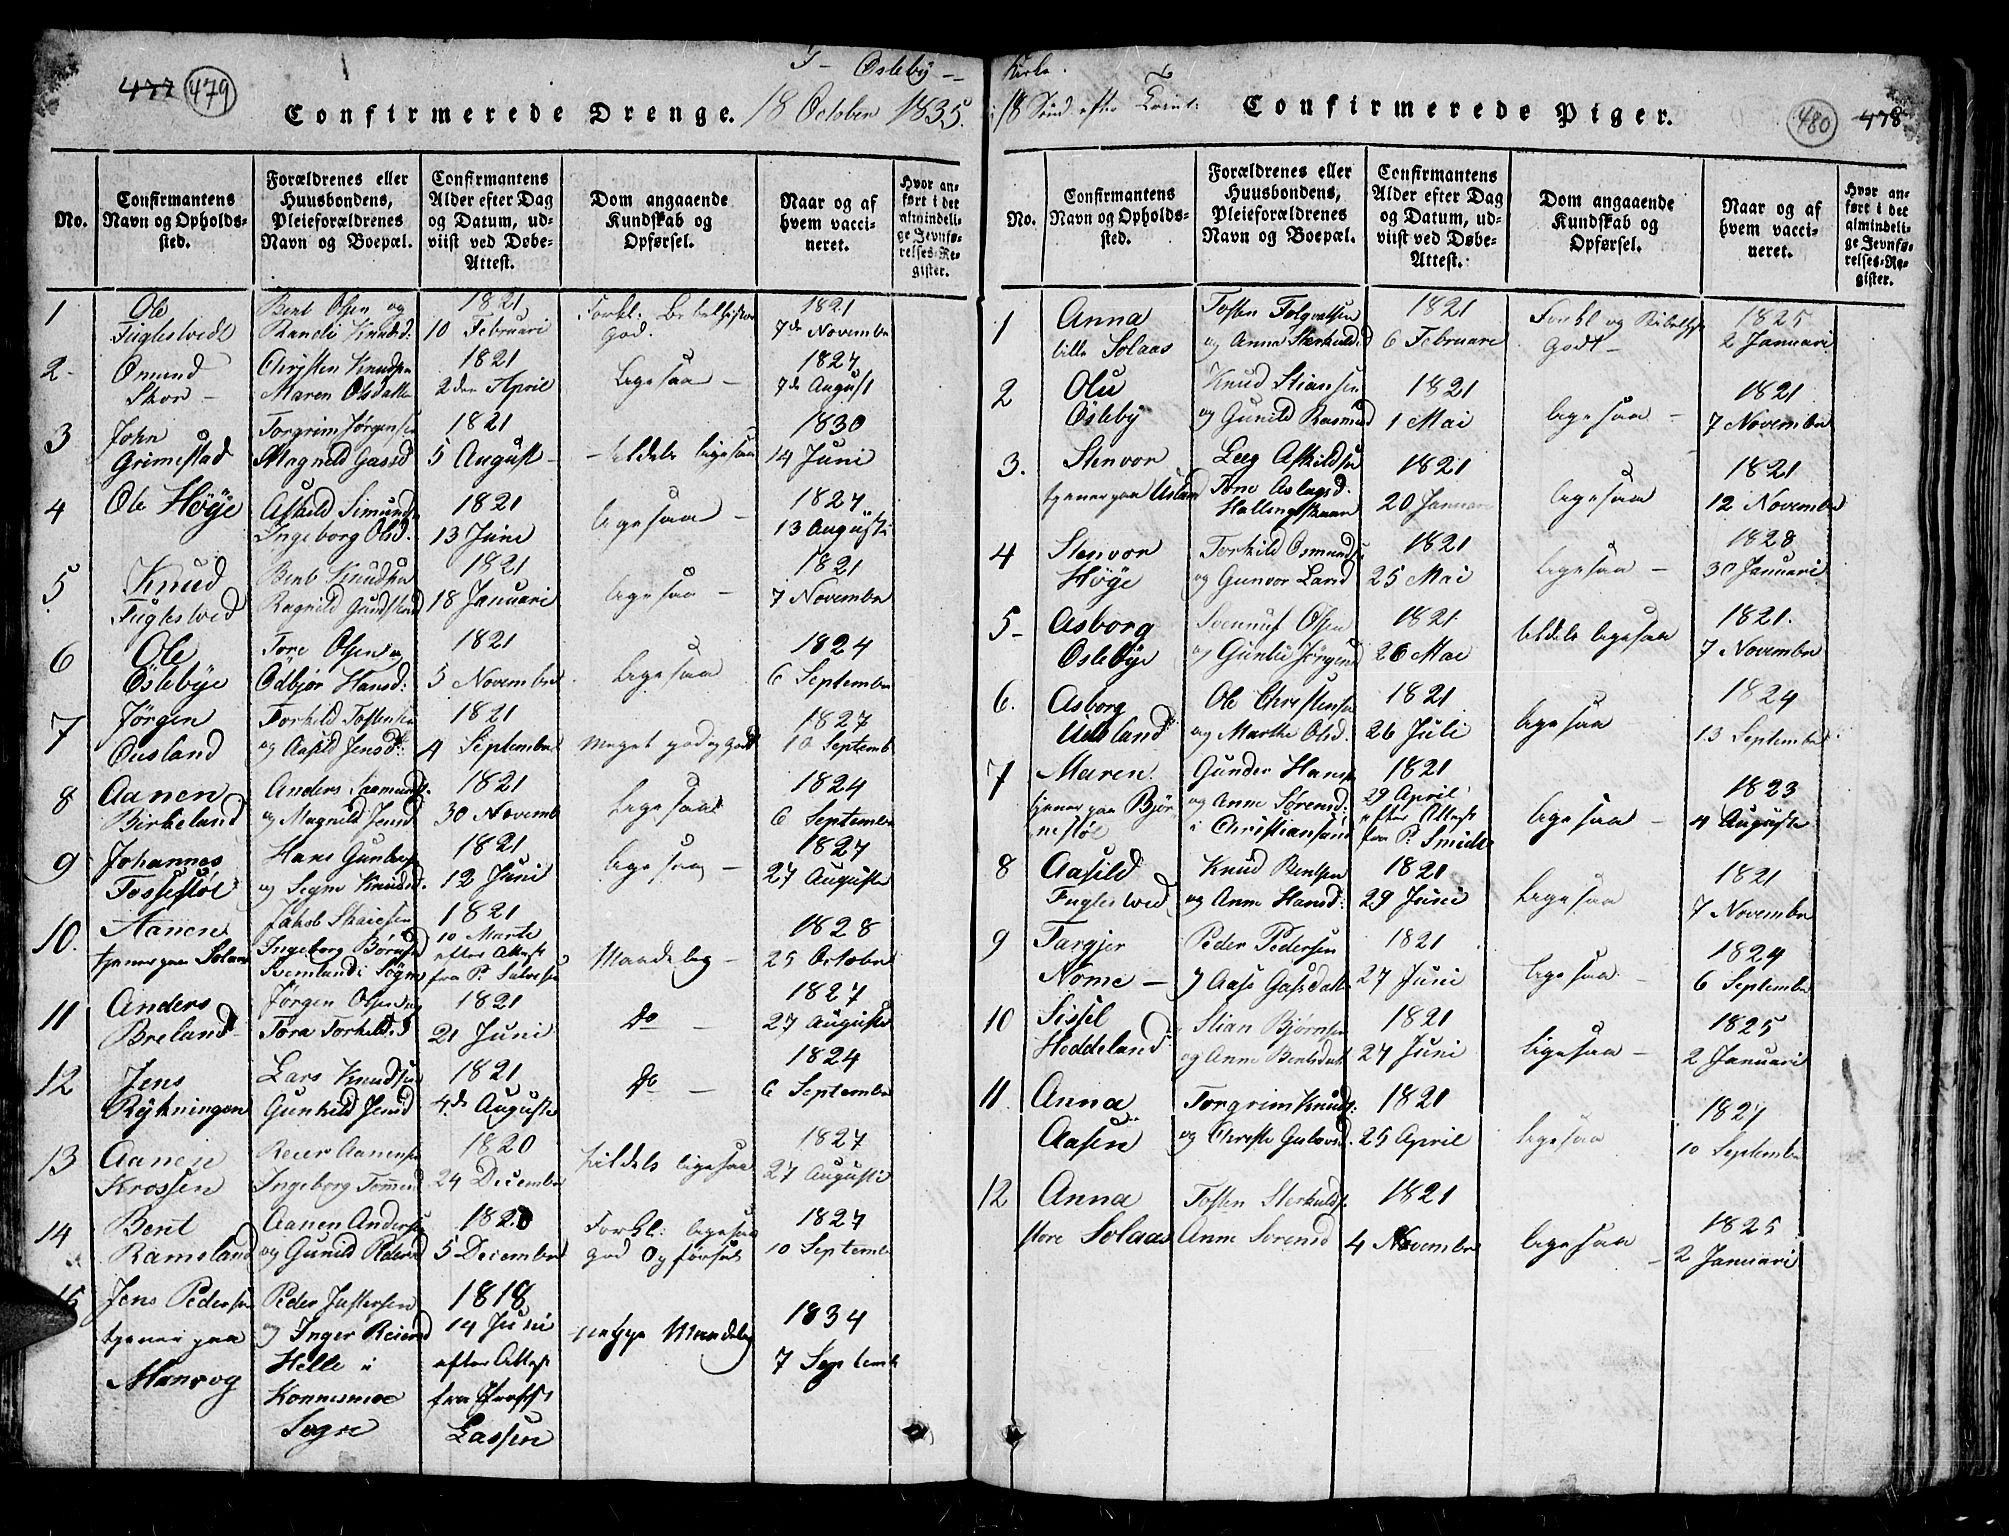 477 479
I Øslebÿ Kirke.
Confirmerede Drenge. 18 October 1835.
No.
Confirmantens Navn og Opholds-
sted.
Forældrenes eller
Huusbondens,
Pleieforældrenes
Navn og Boepæl.
Confirmantens
Alder efter Dag
og Datum, ud-
viist ved Døbe-
Attest.
Dom angaaende
Kundskab og
Opførsel.
Naar og af
hvem vacci-
neret.
Hvor an-
ført i det
almindeli-
ge Jevnfø-
relses-Re-
gister.
1
Ole
Fuglestvedt
Bent Olsen og
Randi Knudsd:
1821
10 Februari
god.
1821
7de November
2
Omund
Skor
Christen Knudsen
Maren Olsdatter
1821
2den April
ligesaa
1827
7de August
3
John
Grimestad
Torgrim Jørgensen
Magnild Gassd
1821
5 August
tildels ligesaa
1830
14 Juni
4
Ole Höÿe
Askild Simunds
Ingeborg Olsd.
1821
13 Juni
ligesaa
1827
13 Augusti
5
Knud
Fuglestved
Bent Knudsen
Ragnild
1821
18 Januari
ligesaa
1821
7 November
6
Ole
Öslebÿe
Tore Olsen og
Odbjør Hansd:
1821
5 November
ligesaa
1824
6 September
7
Jörgen
Ousland
Torkild Tostensen
og Aasild Jensd:
1821
4 September
meget god og godt
1827
10 Septemb
8
Aanen
Birkeland
Anders
og Magnild Jensd
1821
30 Novemb
ligesaa
1824
6 September
9
Johannes
Fossestøl
Hans
og Segne Knudsd.
1821
12 Juni
ligesaa
1827
27 Auguste
10.
Aanen
tjener paa Solaas
Jakob
Ingeborg
Sogn
1821
10 Marti
efter Attest
fra P.
Maadelig
1828
25 October
11
Anders
Breland
Jørgen Olsen og
Tora Torkilsd
1821
21 Juni
Do
1827
27 Auguste
12
Jens
Röÿkningen
Lars Knudsen
Gunhild Jensd
1821
4de Auguste
Do
1824
6 September
13
Aanen
Krossen
Reier Aanensen
Ingeborg
1820
24 December
tildels ligesaa
1827
27 Augusti
14
Bent
Rameland
Aanen Andersen
og Gunild
1820
5 December
ligesaa
god Opførsel
1827
10 Septemb
15
Jens Pedersen
tjener paa
Manvog
Peder
og Inger Reiersd
Helle i
Konnesmoe
Sogn
1818
14 Juni
efter Attest
fra Profst
Lassen
neppe Maadelig
1834
7 Septemb
18 Sønd efter Trinit: Confirmerede Piger. 480 478
No.
Confirmantens
Navn og Opholds-
sted.
Forældrenes eller
Huusbondens,
Pleieforældrenes
Navn og Boepæl.
Confirmantens
Alder efter Dag
og Datum, ud-
viist ved Døbe-
Attest.
Dom angaaende
Kundskab og
Opførsel.
Naar og af
hvem vacci-
neret.
Hvor an-
ført i det
almindeli-
ge Jevnfø-
relses-Re-
gister.
1
Anna
lille Solaas
Tosten
og Anna
1821
6 Februari
godt
1825
2 Januari
2
Olu
Öslebÿ
Knud Stiansen
og Gunild Rasmusd
1821
1 Mai
ligesaa
1821
7 November
3.
Stenvor
tjener paa Usland
Leeg Askildsen
Tone Aslagsd.
1821
20 Januari
ligesaa
1821
12 November
4
Stenvor
Höÿe
Torkild Osmunds
og Gunvor
1821
25 Mai
ligesaa
1828
30 Januari
5
Asborg
Oslebÿe
Olsen
og Gunild Jörgensd
1821
26 Mai
tildels ligesaa
1821.
7 November
6.
Asborg
Udsland
Ole Christensen
og Marthe Olsd.
1821
26 Juli
ligesaa
1824
13 September
7
Maren
tjener paa Bjør-
nestøl
Gunder Hans
og Anne Sørensd:
i Christiansand
1821
29 April
efter Attest
fra P. Smidt
ligesaa
1823
4 Auguste
8
Aasild
Fuglestved
Knud Bentsen
og Anne Hansd:
1821
29 Juni
ligesaa
1821
7 November
9
Targjer
Nome
Peder Pedersen
og Aase Gassdatter
1821
27 Juni
ligesaa
1824
6 September
10
Sissel
Heddeland
Stian Bjørnsen
og Anne Bentsdat
1821
27 Juni
ligesaa
1825
2 Januari
11
Anna
Aasen
Torgrim Knuds:
og Christe
1821
25 April
ligesaa
1827
10 September
12
Anna
store Solaas
Tosten
Anne Sorensd
1821
4 November
ligesaa
1825
2 Januari